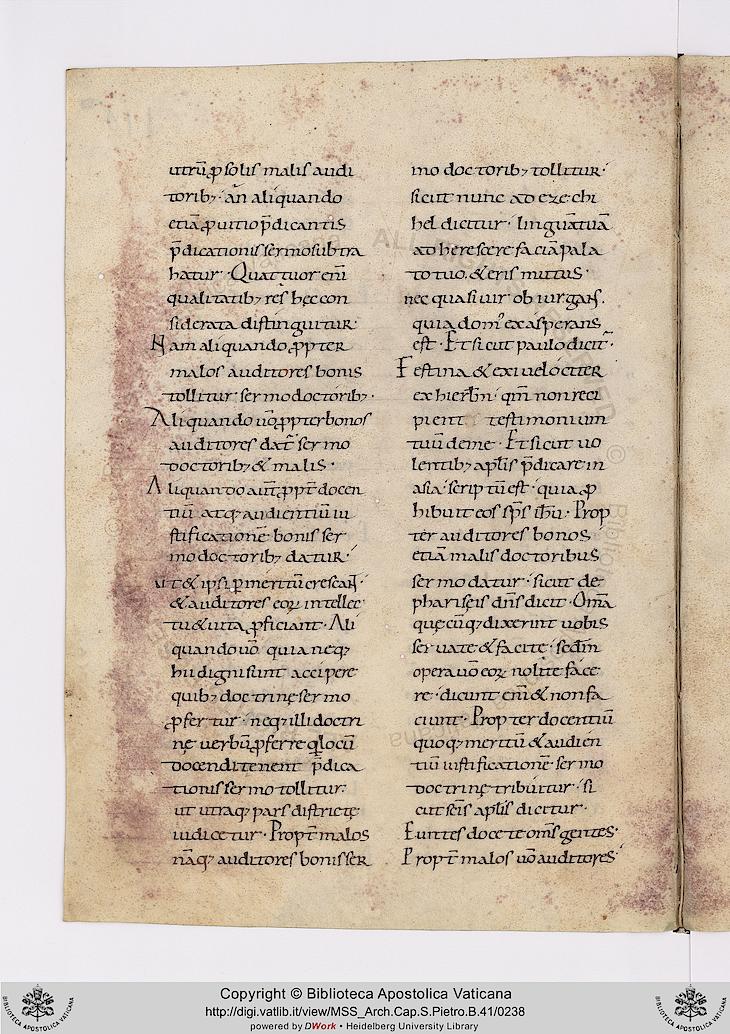 utrū ꝓ solis malis audi
torib; · an̄ aliquando
etiā ꝓ uitio p̄dicantis
p̄dicationis sermo subtra
hatur · Quattuor eni̅
qualitatib; res hęc con
siderata distinguitur
Nam aliquando ꝓpter
malos auditores bonis
tollitur sermo doctorib; ·
Aliquando uō ꝓpter bonos
auditores dat̄ sermo
doctorib; & malis ·
Aliquando aut̄ ꝓpt̄ docen
tiū atq; audientiū iu
stificationē bonis ser
mo doctorib; datur ·
ut & ipsi ꝑ meritū crescant
& auditores eoꝝ intellec
tu & uita ꝓficiant · Ali
quando uō quia neq;
hii digni sunt accipere
quib; doctrinę sermo
ꝓfertur · neq; illi doctri
nę uerbū ꝓferre q locū
docendi tenent p̄dica
tionis sermo tollitur ·
ut utraq; pars districte
iudicetur · Propt̄ malos
nāq; auditores bonis ser
mo doctorib; tollitur ·
sicut nunc ad ezechi
hel dicitur · linguā tuā
adherescere faciā pala
to tuo · & eris mutus ·
nec quasi uir obiurgans ·
quia dom' exasperans
est · Et sicut paulo dicit̄ ·
Festina & exi uelociter
ex hierl̄m · qm̄ non reci
pient testimonium
tuū de me · Et sicut uo
lentib; apl̄is p̄dicare in
asia · scriptū est · quia ꝓ
hibuit eos sp̄s ih̄u · Prop
ter auditores bonos
etiam malis doctoribus
sermo datur · sicut de
phariseis dn̄s dicit · Om̄a
quęcūq; dixerint uobis
seruate & facite · sed̄m
opera uō eoꝝ nolite face
re · dicunt eni̅ & non fa
ciunt · Propter docentiū
quoq; meritū & audien
tiū iustificationē sermo
doctrinę tribuitur · si
cut sc̄is apl̄is dicitur ·
Euntes docete om̄s gentes ·
Propt̄ malos uō auditores
Copyright © Biblioteca Apostolica Vaticana
http://digi.vatlib.it/view/MSS_Arch.Cap.S.Pietro.B.41/0238
powered by DWork • Heidelberg University Library